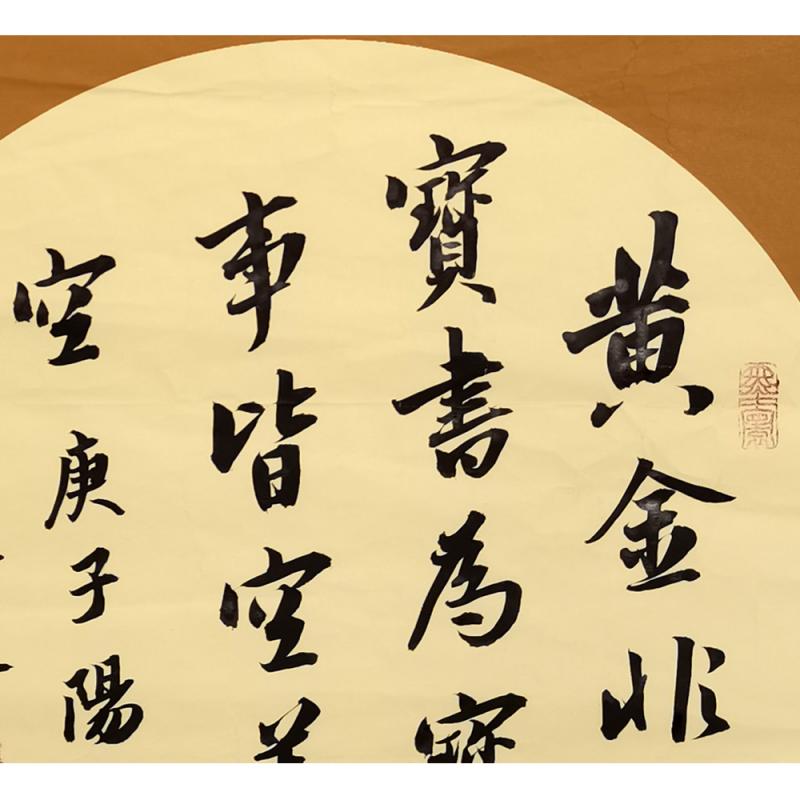 黄金非
寶書為寶
事皆空
空
庚子陽